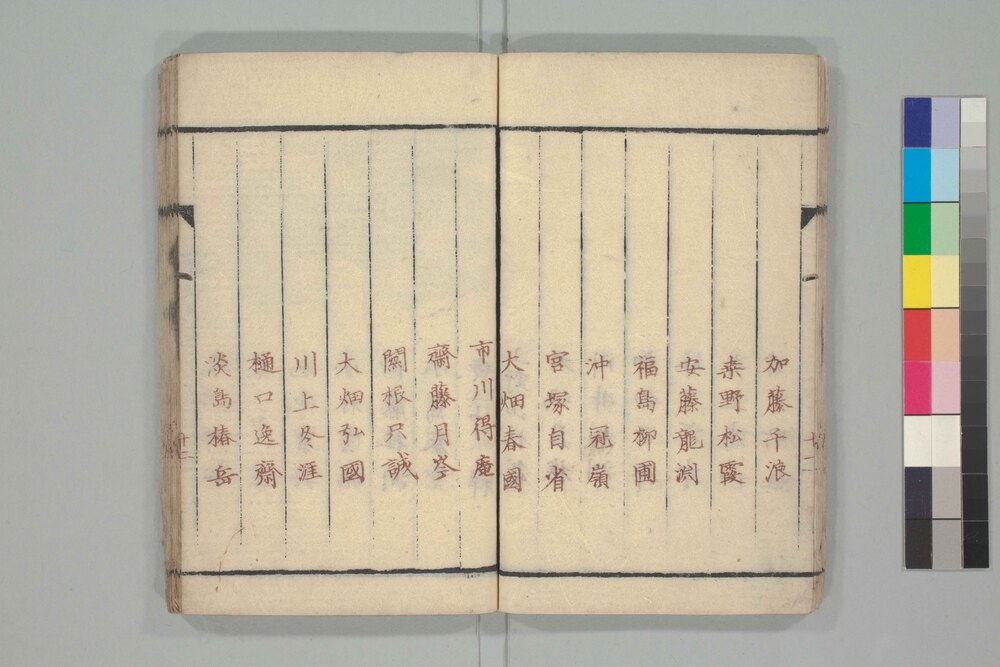 加藤千浪
桒野松霞
安藤龍淵
福島柳圃
沖冠嶺
宮塚自省
大畑春國
市川得庵
齋藤月岑
關根只誠
大畑弘國
川上冬涯
樋口逸齋
淡島椿岳
十二